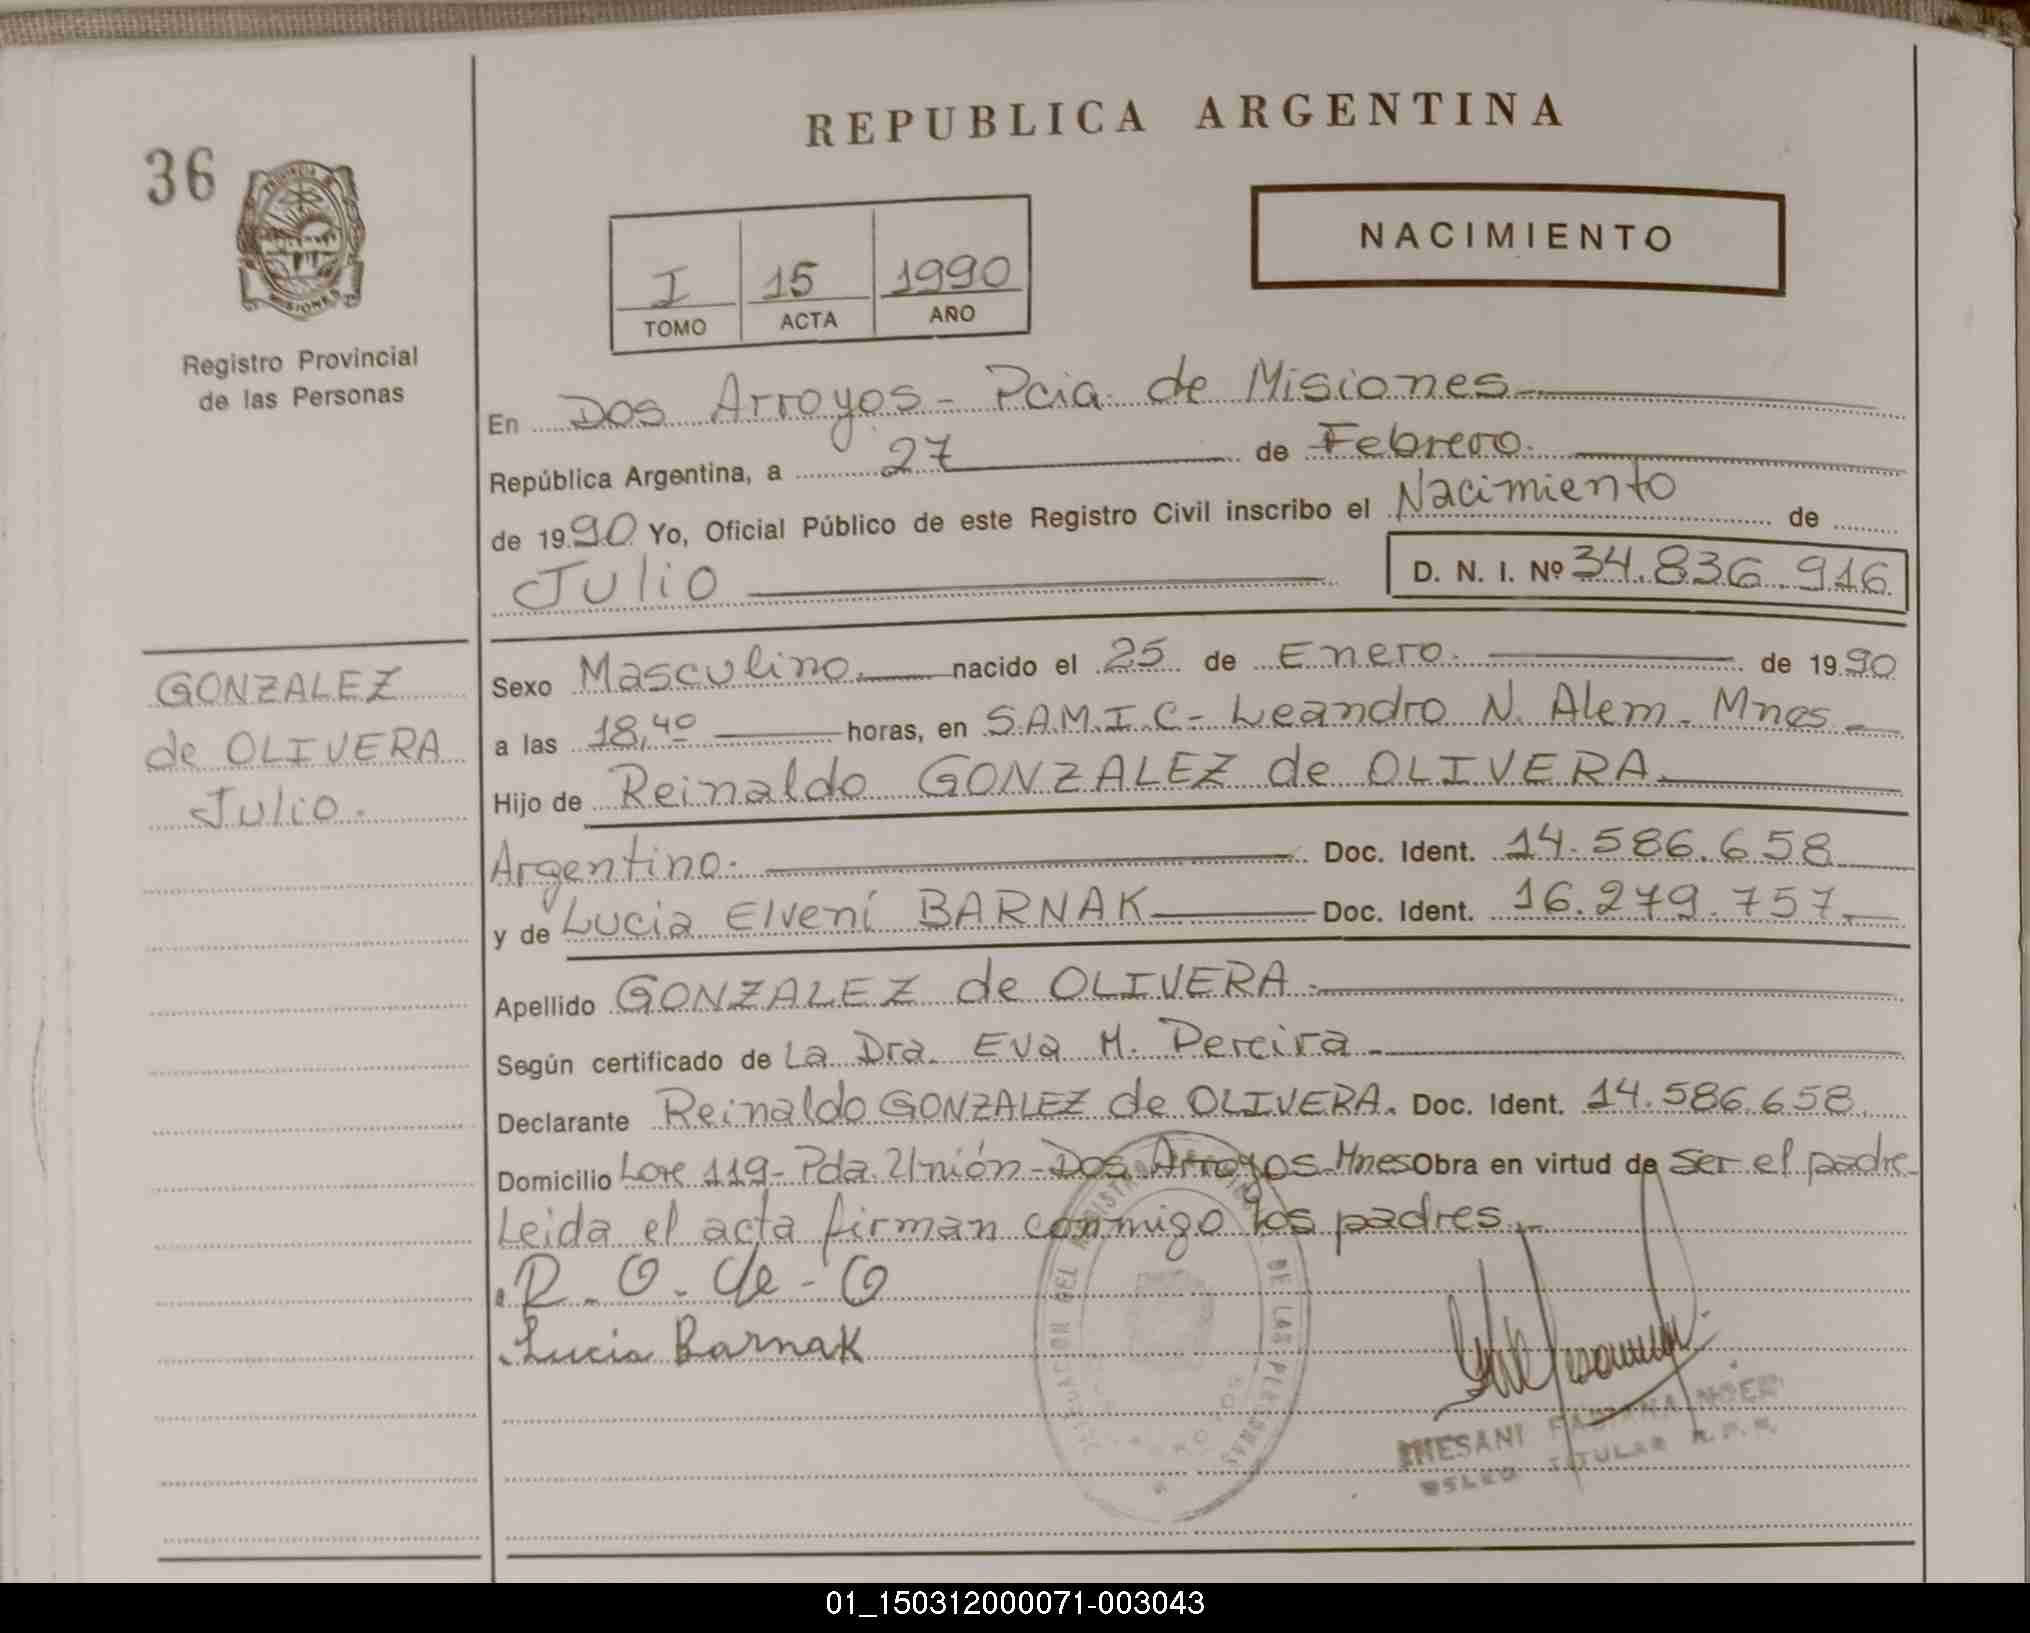 REPUBLICA ARGENTINA
36
PROVINCIA DE
MISIONES
NACIMIENTO
I 15 1990
TOMO ACTA AÑO
Registro Provincial
de las Personas
En Dos Arroyos - Pcia. de Misiones
República Argentina, a 27 de Febrero.
de 1990 Yo, Oficial Público de este Registro Civil inscribo el Nacimiento de
Julio D. N. I. Nº 34.836.916
GONZALEZ
de OLIVERA
Julio.
Sexo Masculino. nacido el 25 de Enero. de 1990
a las 18,40 horas, en S.A.M.I.C - Leandro N. Alem - Mnes -
Hijo de Reinaldo GONZALEZ de OLIVERA.
Argentino. Doc. Ident. 14.586.658
y de Lucia Elvení BARNAK Doc. Ident. 16.279.757
Apellido GONZALEZ de OLIVERA.
Según certificado de La Dra. Eva M. Pereira
Declarante Reinaldo GONZALEZ de OLIVERA. Doc. Ident. 14.586.658
Domicilio Lote 119 - Pda. Unión - Dos Arroyos - Mnes Obra en virtud de ser el padre
Leida el acta firman conmigo los padres.
R. O. de - O
Lucia Barnak
DEL REGISTRO DE LAS PERSONAS
FABIANA
TITULAR R. P. P.
01_150312000071-003043